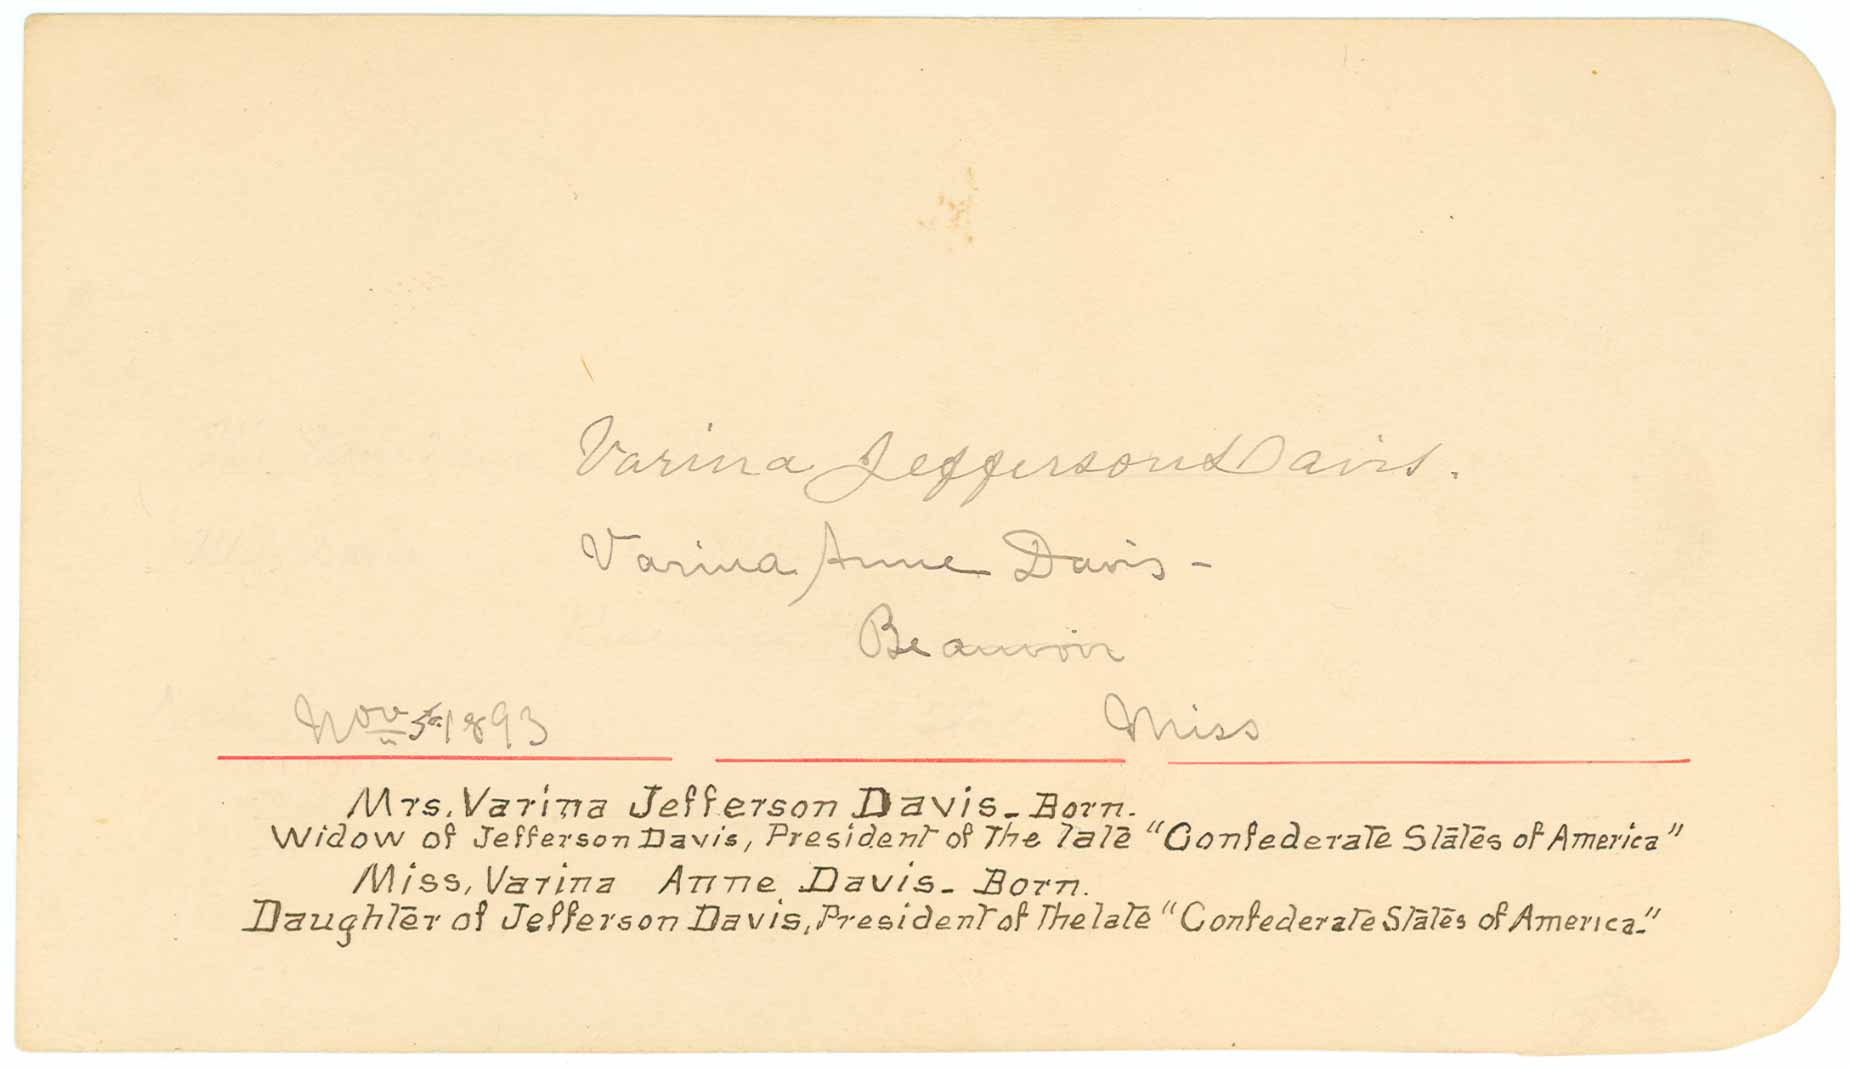 Varina Jefferson Davis.
Varina Anne Davis -
Beauvoir
Nov 5th 1893 Miss
Mrs. Varina Jefferson Davis - Born.
Widow of Jefferson Davis, President of The late "Confederate States of America"
Miss, Varina Anne Davis - Born.
Daughter of Jefferson Davis, President of The late "Confederate States of America."